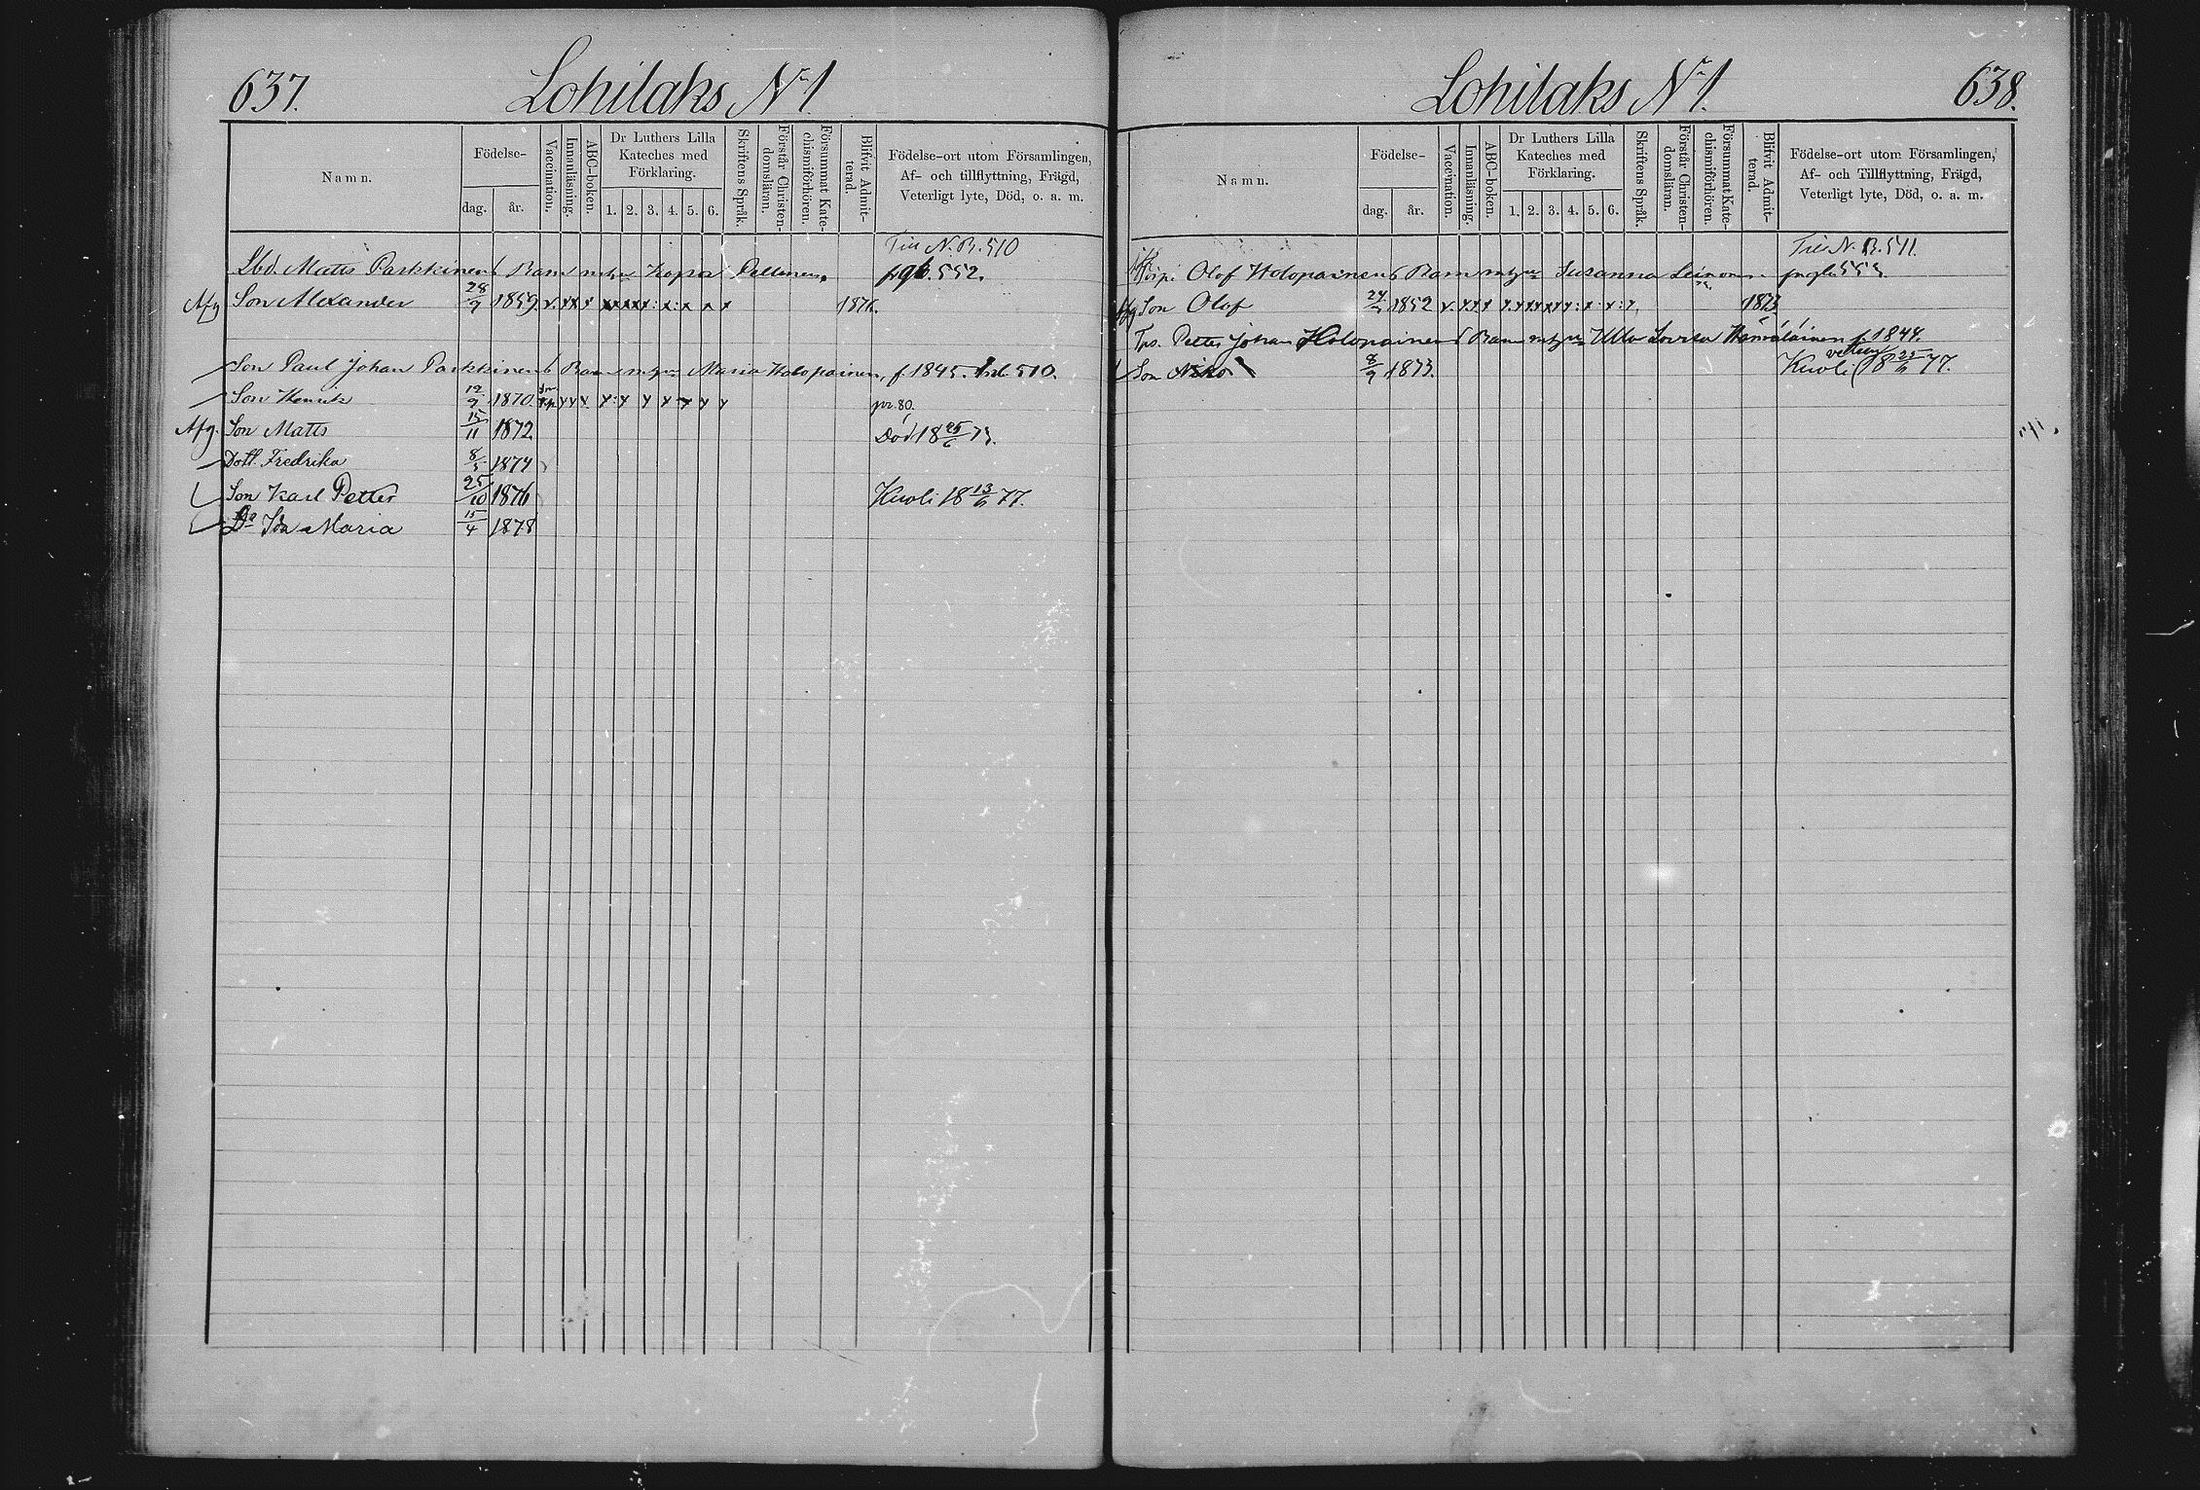 637.
Lohilaks No 1
Namn.
Födelse-
dag.
år.
Vaccination.
Innanläsning.
ABC-boken.
Dr Luthers Lilla
Kateches med
Förklaring.
1. 2. 3. 4. 5. 6.
Skriftens Språk.
Förstår Christen-
domsläran.
Försummat Kate-
chismiförhören.
Blifvit Admit-
terad.
Födelse-ort utom Församlingen,
Af- och tillflyttning, Frägd,
Veterligt lyte, Död, o. a. m.
Till N. B. 510
Lbd. Matts Parkkinens Barn 552.
Afg Son Alexander 28/9 1859 x x x x 1876.
Son Paul Johan Parkkinens Barn Maria Holopainen, f. 1845. 510.
Son Henrik 19/9 1870 x x x x x x x x x 80.
Afg. Son Matts 15/11 1872 Död 18 25/6 73.
Dott. Fredrika 8/5 1874
Son Karl Petter 25/10 1876 Kuoli 18 13/6 77.
Do Ida Maria 15/4 1878
Lohilaks No 1.
638.
Namn.
Födelse-
dag.
år.
Vaccination.
Innanläsning.
ABC-boken.
Dr Luthers Lilla
Kateches med
Förklaring.
1. 2. 3. 4. 5. 6.
Skriftens Språk.
Förstår Christen-
domsläran.
Försummat Kate-
chismiförhören.
Blifvit Admit-
terad.
Födelse-ort utom Församlingen,
Af- och Tillflyttning, Frägd,
Veterligt lyte, Död, o. a. m.
Till N. B. 511.
Olof Holopainens Barn Susanna Leinonen
Afg Son Olof 1852 1873
Petter Johan Holopainens Barn Ulla Lovisa f. 1844.
Son 8/9 1873. Kuoli 18 25/6 77.